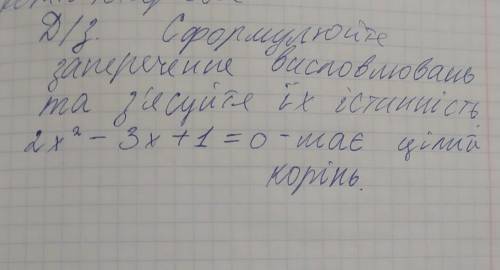 Д/з. Сформулюйте
заперечення висловлювань
та з'ясуйте їх істинність
2x² - 3x + 1 = 0 - має цілий
корінь.